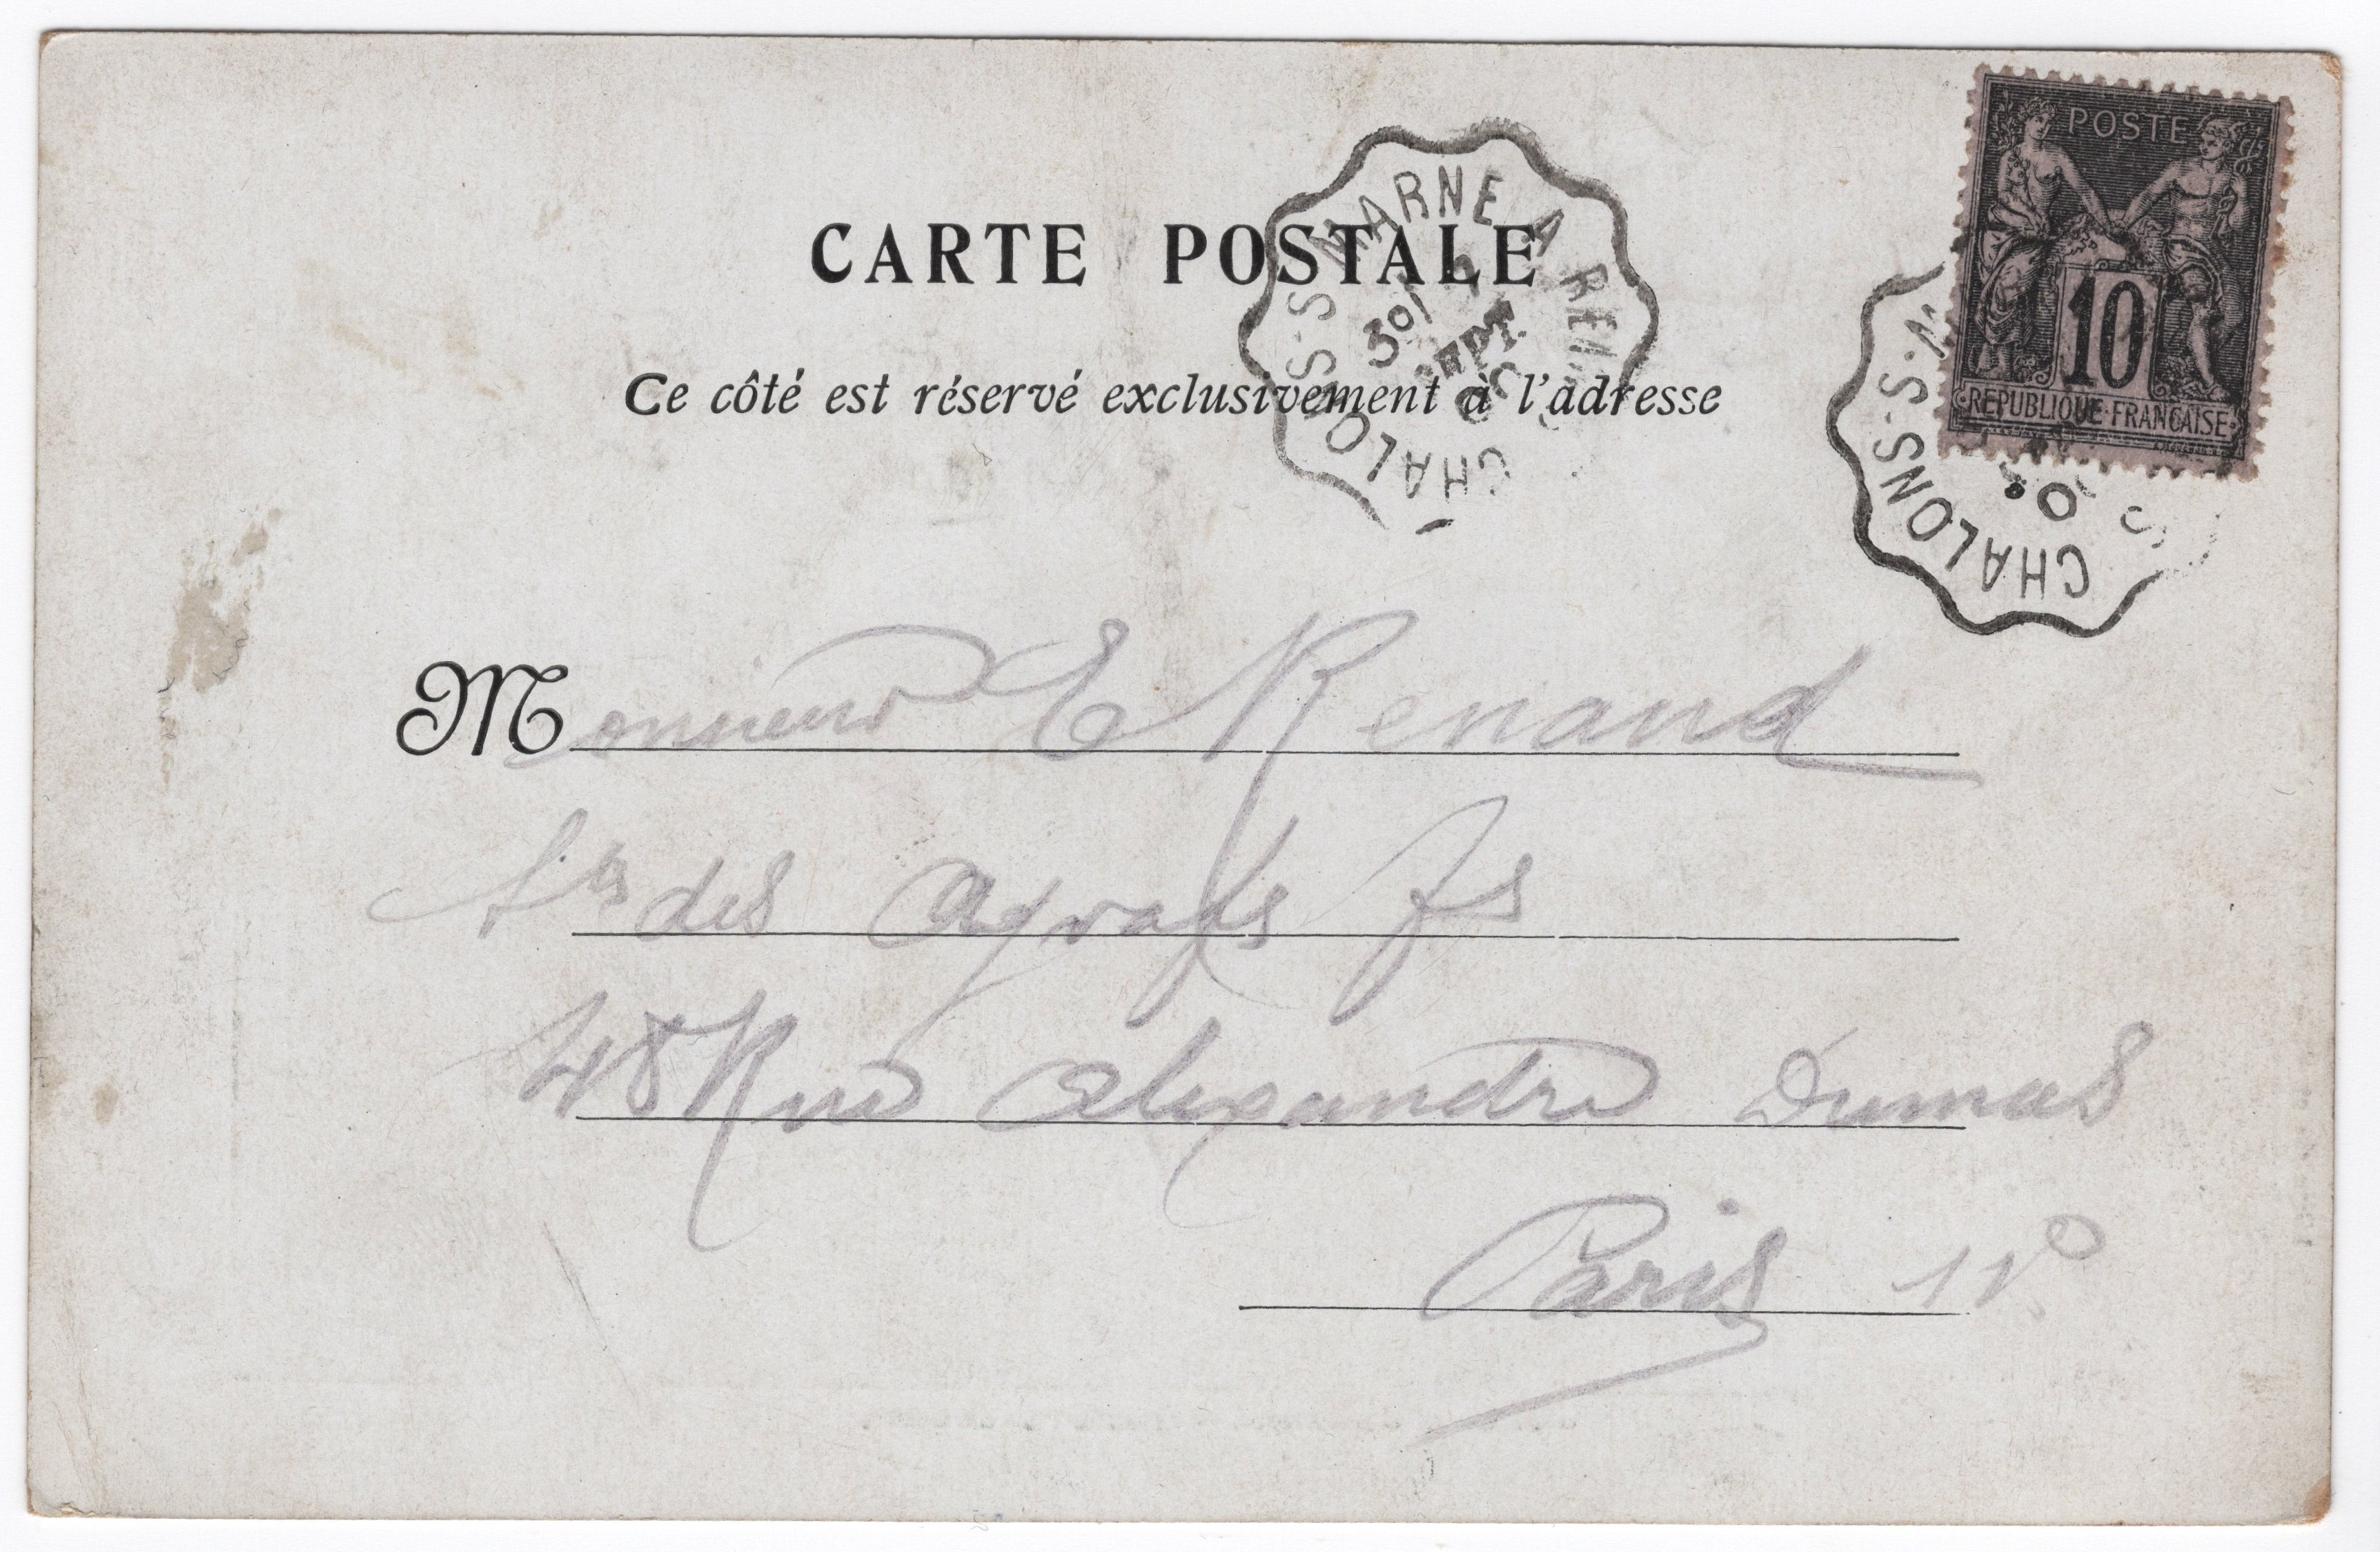 POSTE
10
REPUBLIQUE FRANCAISE
CHALONS-S-MARNE A REIMS
30 SEPT.
CARTE POSTALE
Ce côté est réservé exclusivement à l'adresse
CHALONS-S-M
Monsieur E Renaud
des Agrafes
48 Rue Alexandre Dumas
Paris 11e